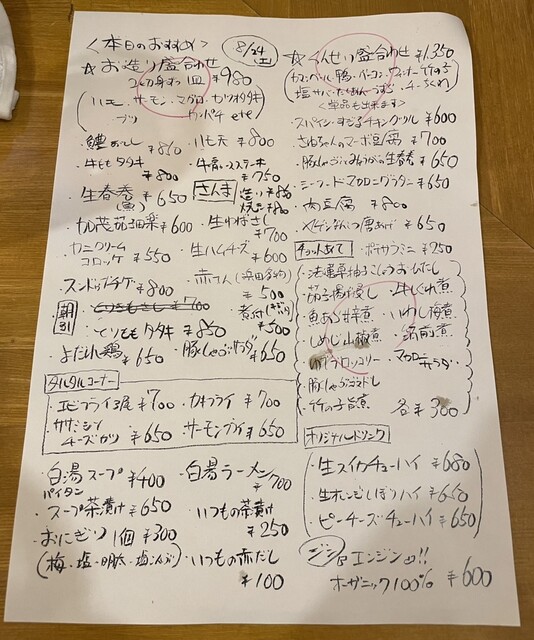 <本日のおすすめ>
8/24(土)
☆お造り盛合わせ
2切身ずつ 1皿 ¥980
(ハモ・サーモン・マグロ・カツオタタキ
ブリ カンパチ etc)
¥850
・ハモ天 ¥800
・牛ももタタキ
¥800
¥750
・生春巻 ¥650
さんま
造り ¥850
焼き ¥800
・加茂茄田楽 ¥600
・生ゆばさし
¥700
・カニクリーム
コロッケ ¥550
・生ハムチーズ
¥600
・スンドゥブチゲ ¥800
¥500
朝引
・とりももさし ¥700
・とりももタタキ ¥850
・煮付
¥500
・よだれ鶏 ¥650
・豚しゃぶサラダ ¥650
タルタルコーナー
・エビフライ3尾 ¥700
・カキフライ ¥700
チーズカツ ¥650
・サーモンフライ ¥650
・白湯スープ ¥400
パイタン
・白湯ラーメン
¥700
・スープ茶漬け ¥650
・いつもの茶漬け
¥250
・おにぎり 1個 ¥300
(梅・塩・明太・塩こんぶ)
・いつもの赤だし
¥100
☆くんせい盛合わせ ¥1,350
(カマンベール・鴨・ベーコン・ウィンナー・竹の子
塩サバ・たくあん・うずら・チーちくわ)
<単品も出来ます>
・スパイシーすだちチキングリル ¥600
・さゆちゃんのマーボ豆腐 ¥700
・豚しゃぶとみょうがの生春巻 ¥650
・シーフードマカロニグラタン ¥650
・肉豆腐 ¥800
・ヤゲンなんこつ唐あげ ¥650
チョットあて
・ポテサラミニ ¥250
・法蓮草柚子こしょうおひたし
・茄子揚げ浸し
・牛しぐれ煮
・魚あら甘辛煮
・いわし梅煮
・しめじ山椒煮
・筑前煮
・ゆでブロッコリー
・マカロニサラダ
・豚しゃぶゴマドレ
・竹の子旨煮
各¥300
オリジナルドリンク
・生スイカチューハイ ¥680
・生オレンジしぼりハイ ¥650
・ピーチーズチューハイ ¥650
オーガニック100% ¥600